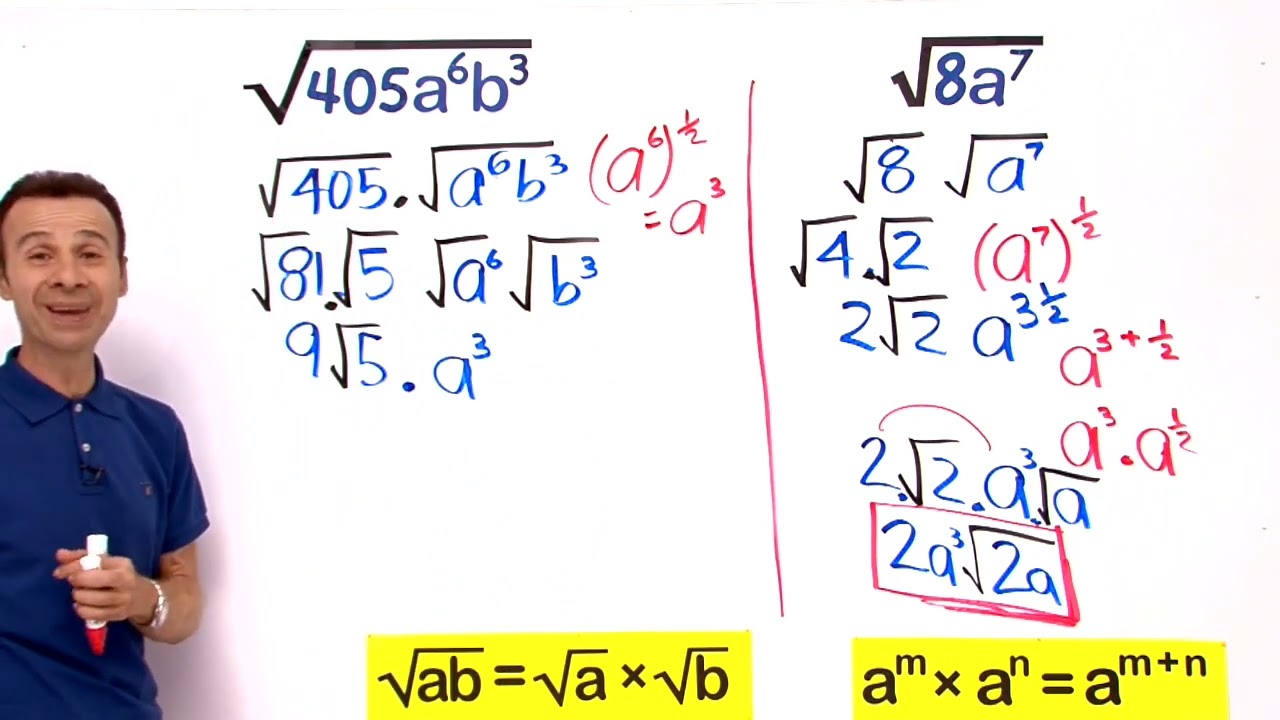 √405a⁶b³
√405 . √a⁶b³ (a⁶)^½
= a³
√81 . √5 √a⁶ √b³
9√5 . a³
√8a⁷
√8 √a⁷
√4 . √2 (a⁷)^½
2√2 a^3½
a^3+½
a³ . a^½
2 . √2 . a³ . √a
2a³√2a
√ab = √a × √b
aᵐ × aⁿ = aᵐ⁺ⁿ